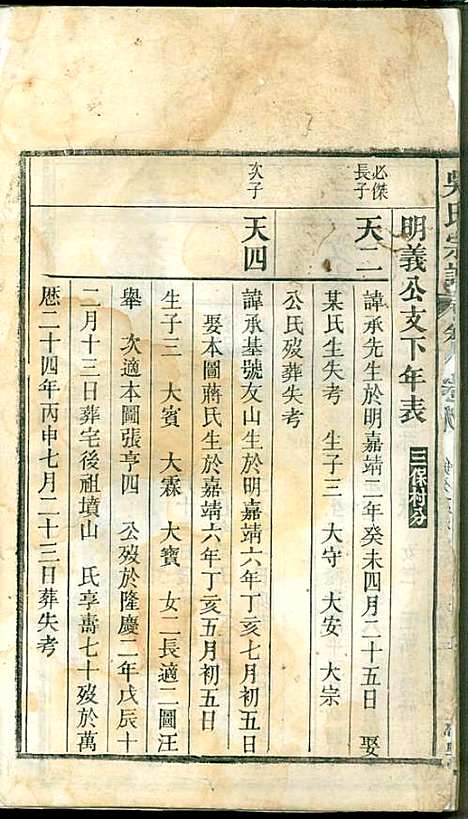 吳氏宗譜
明義公支下年表 三保村分
必傑
長子
天二
諱承先生於明嘉靖二年癸未四月二十五日 娶
某氏生失考 生子三 大守 大安 大宗
公氏歿葬失考
次子
天四
諱承基號友山生於明嘉靖六年丁亥七月初五日
娶本圖蔣氏生於嘉靖六年丁亥五月初五日
生子三 大賓 大霖 大寶 女二長適二圖汪
舉 次適本圖張亨四 公歿於隆慶二年戊辰十
二月十三日葬宅後祖墳山 氏享壽七十歿於萬
歷二十四年丙申七月二十三日葬失考